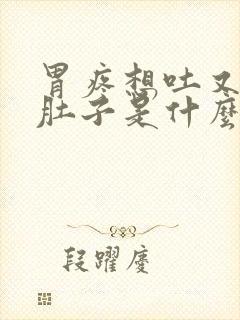 胃疼想吐又
肚子是什麼
段躍慶